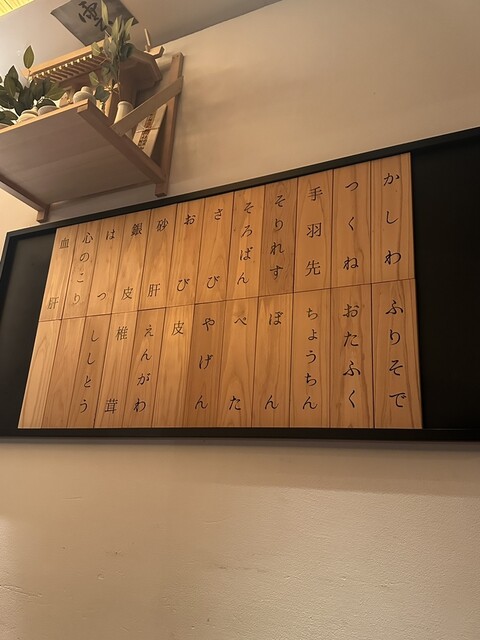 雲
かしわ
つくね
手羽先
そりれす
そろばん
さび
おび
砂肝
銀皮
はつ
心のこり
血肝
ふりそで
おたふく
ちょうちん
ぼん
ぺた
やげん
皮
えんがわ
椎茸
ししとう